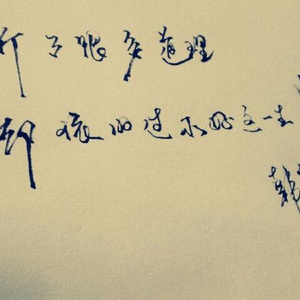 了很多道理
却过不好这一生